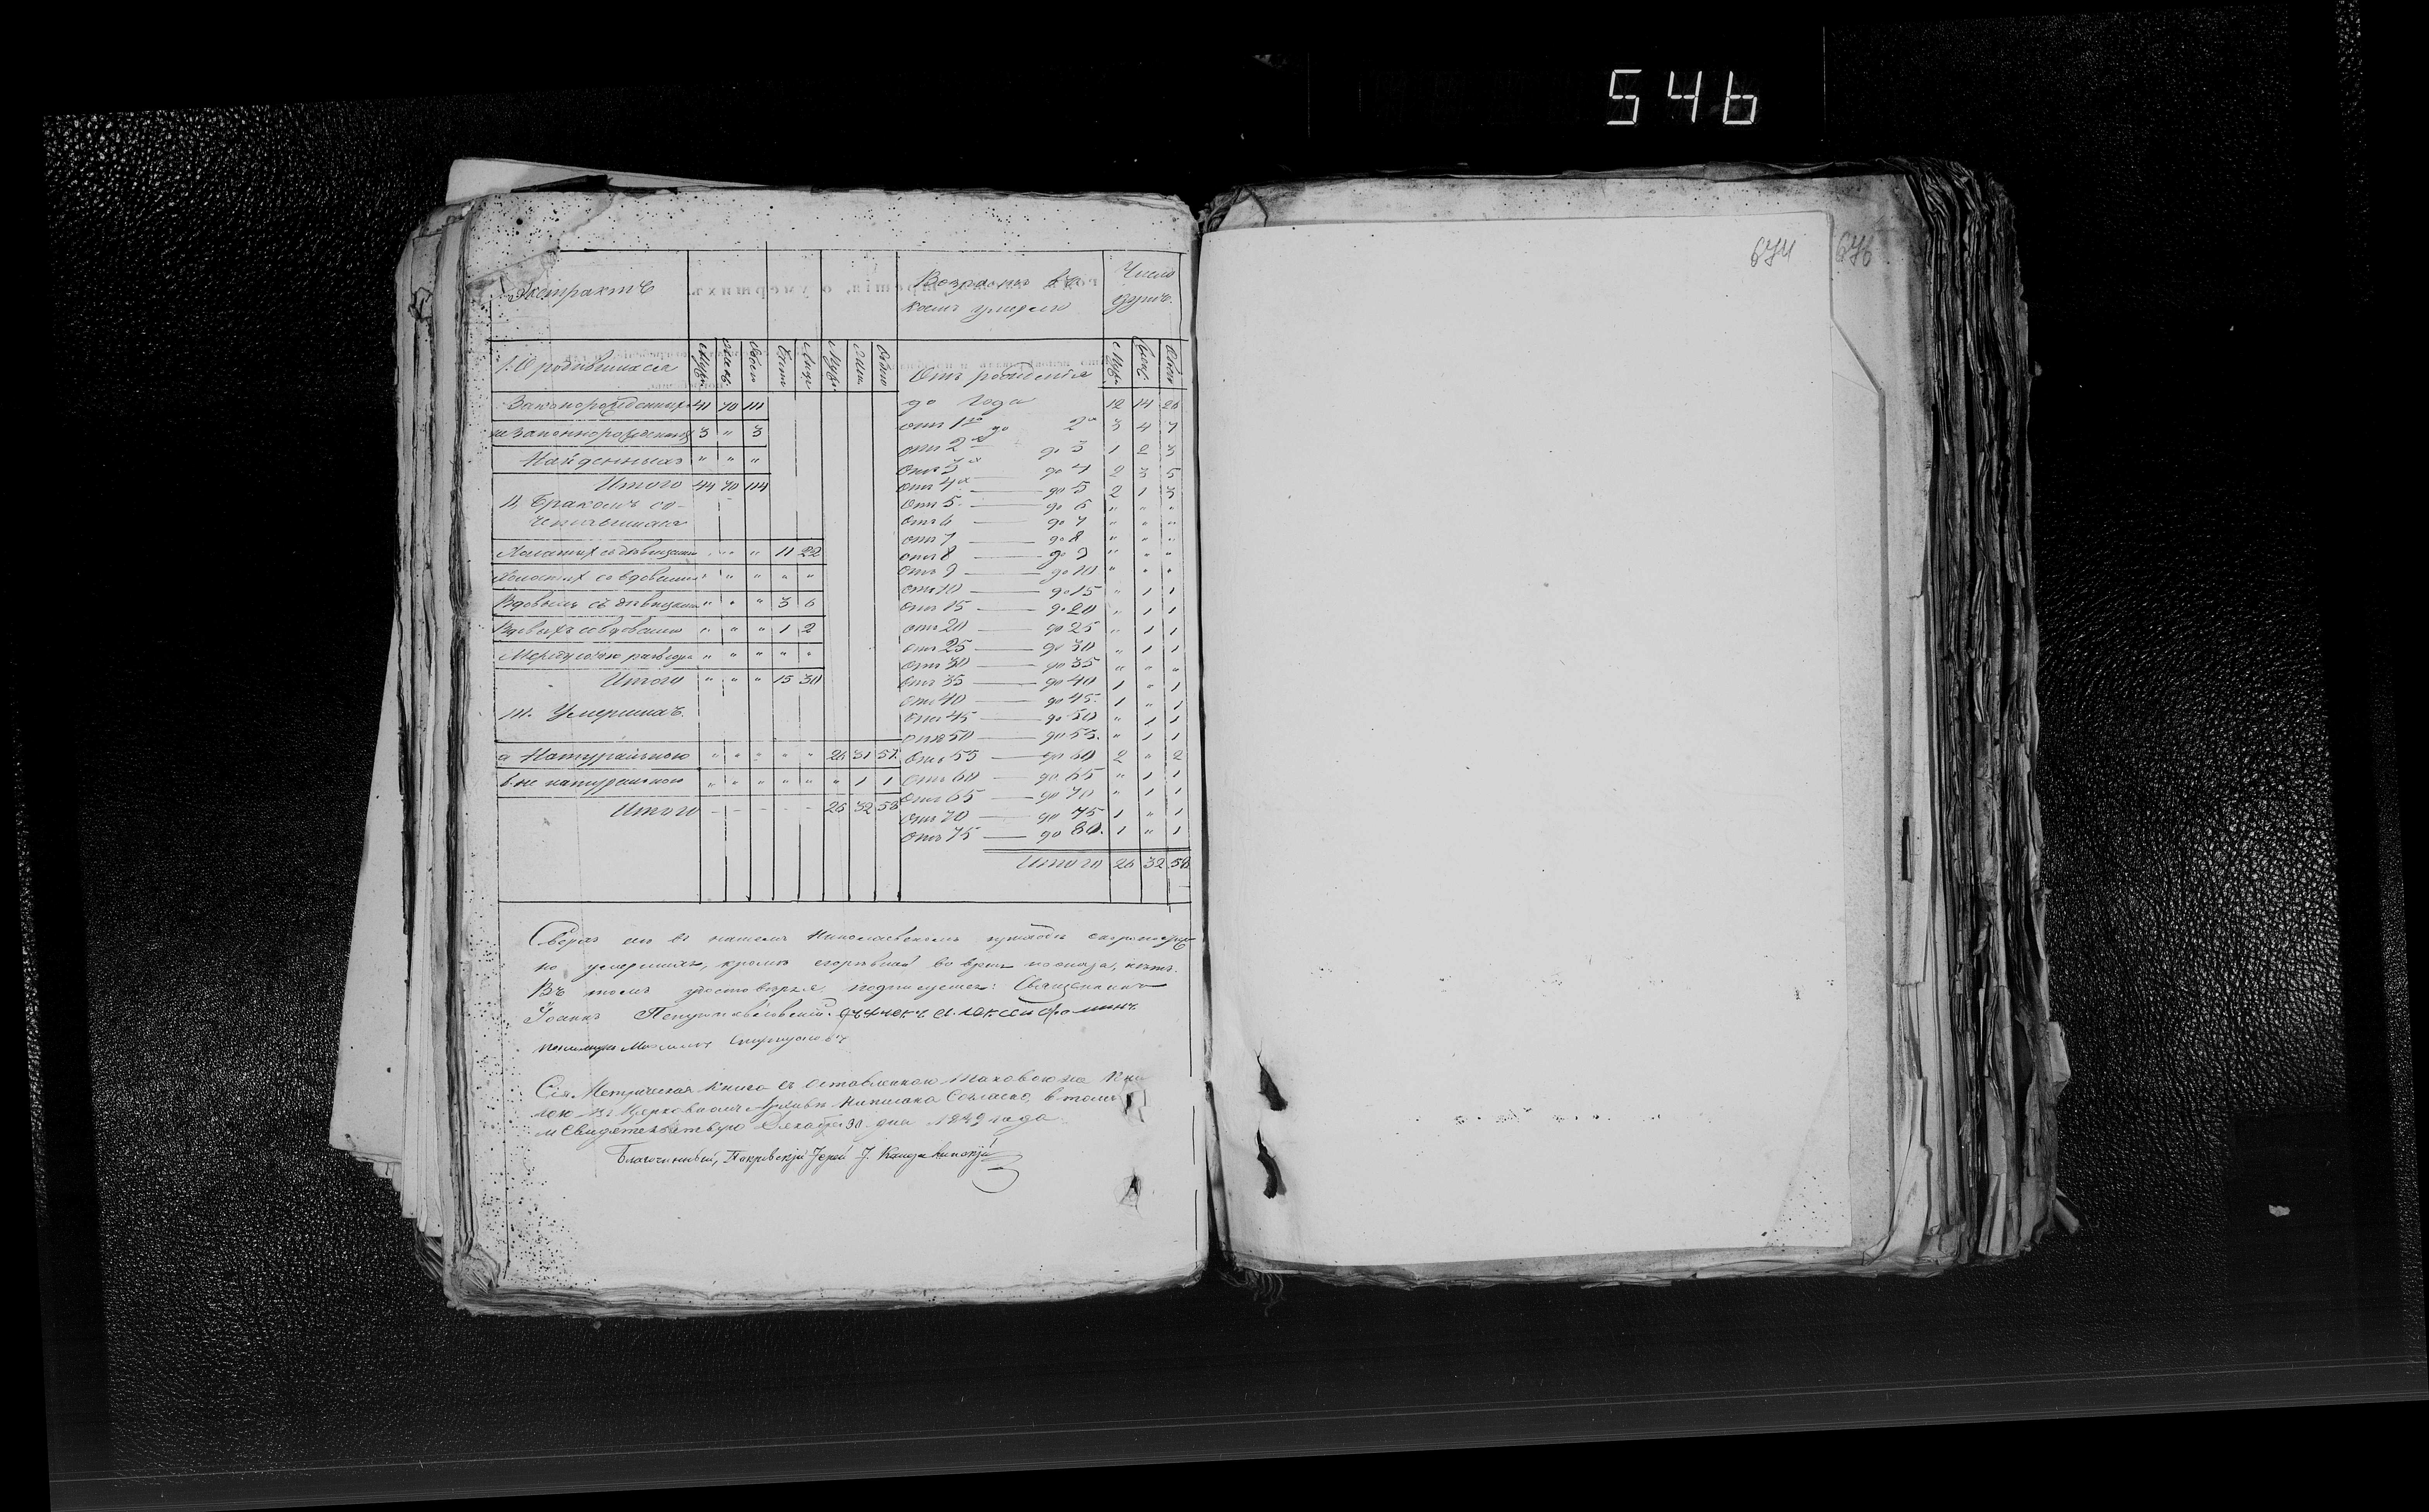 546
674 676
Экстрактъ
Возрастъ въ Число
коемъ умерло душъ.
I. О родившихся Муж. Жен. Обоего Бракъ Лицъ Муж. Жен. Обоего Отъ рожденія Муж. Жен. Обоего
Законорожденныхъ 41 70 111
не законнорожденныхъ 3 " 3
Найденныхъ " " "
Итого 44 70 114
II. Бракомъ со-
четавшихся
Холостыхъ съ дѣвицами " " " 11 22
Холостыхъ со вдовами " " " " "
Вдовыхъ съ дѣвицами " " " 3 6
Вдовыхъ со вдовами " " " 1 2
" " " " "
Итого " " " 15 30
III. Умершихъ
а Натуральною " " " " " 26 31 57
в не натуральною " " " " " " 1 1
Итого - - - - - 26 32 58
до Года 12 14 26
отъ 1го до 2хъ 3 4 7
отъ 2хъ до 3 1 2 3
отъ 3х до 4 2 3 5
отъ 4х до 5 2 1 3
отъ 5 до 6 " " "
отъ 6 до 7 " " "
отъ 7 до 8 " " "
отъ 8 до 9 " " "
отъ 9 до 10 " " "
отъ 10 до 15 " 1 1
отъ 15 до 20 " 1 1
отъ 20 до 25 " 1 1
отъ 25 до 30 " 1 1
отъ 30 до 35 " " "
отъ 35 до 40 1 " 1
отъ 40 до 45 1 " 1
отъ 45 до 50 " 1 1
отъ 50 до 55 " 1 1
отъ 55 до 60 2 " 2
отъ 60 до 65 " 1 1
отъ 65 до 70 " 1 1
отъ 70 до 75 1 " 1
отъ 75 до 80. 1 " 1
Итого 26 32 58
въ нашемъ Николаевскомъ приходѣ скоропостиж
но умершихъ, кромѣ сгорѣвшей во время пожара, нѣтъ.
Въ томъ удостовѣряя подписуемся: Священникъ
Іоаннъ Петропавловскій. Дьячокъ Алексей Фоминъ.
пономарь
Сія Метрическая Книга съ Оставленною таковою же Кни
гою въ Церковномъ Архивѣ Писана Согласно, въ томъ
и Свидетельствую Декабря 30 дня 1849 года.
Благочинный, Покровскій Іерей І.